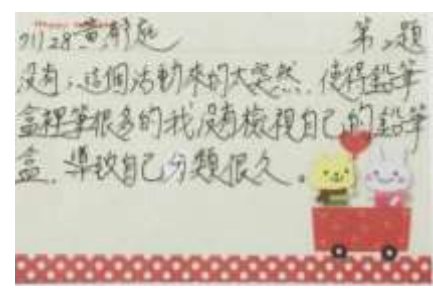 71128 黃郁庭 第2題
沒有,這個活動來的太突然,使得鉛筆
盒裡筆很多的我沒有檢視自己的鉛筆
盒,導致自己分類很久。